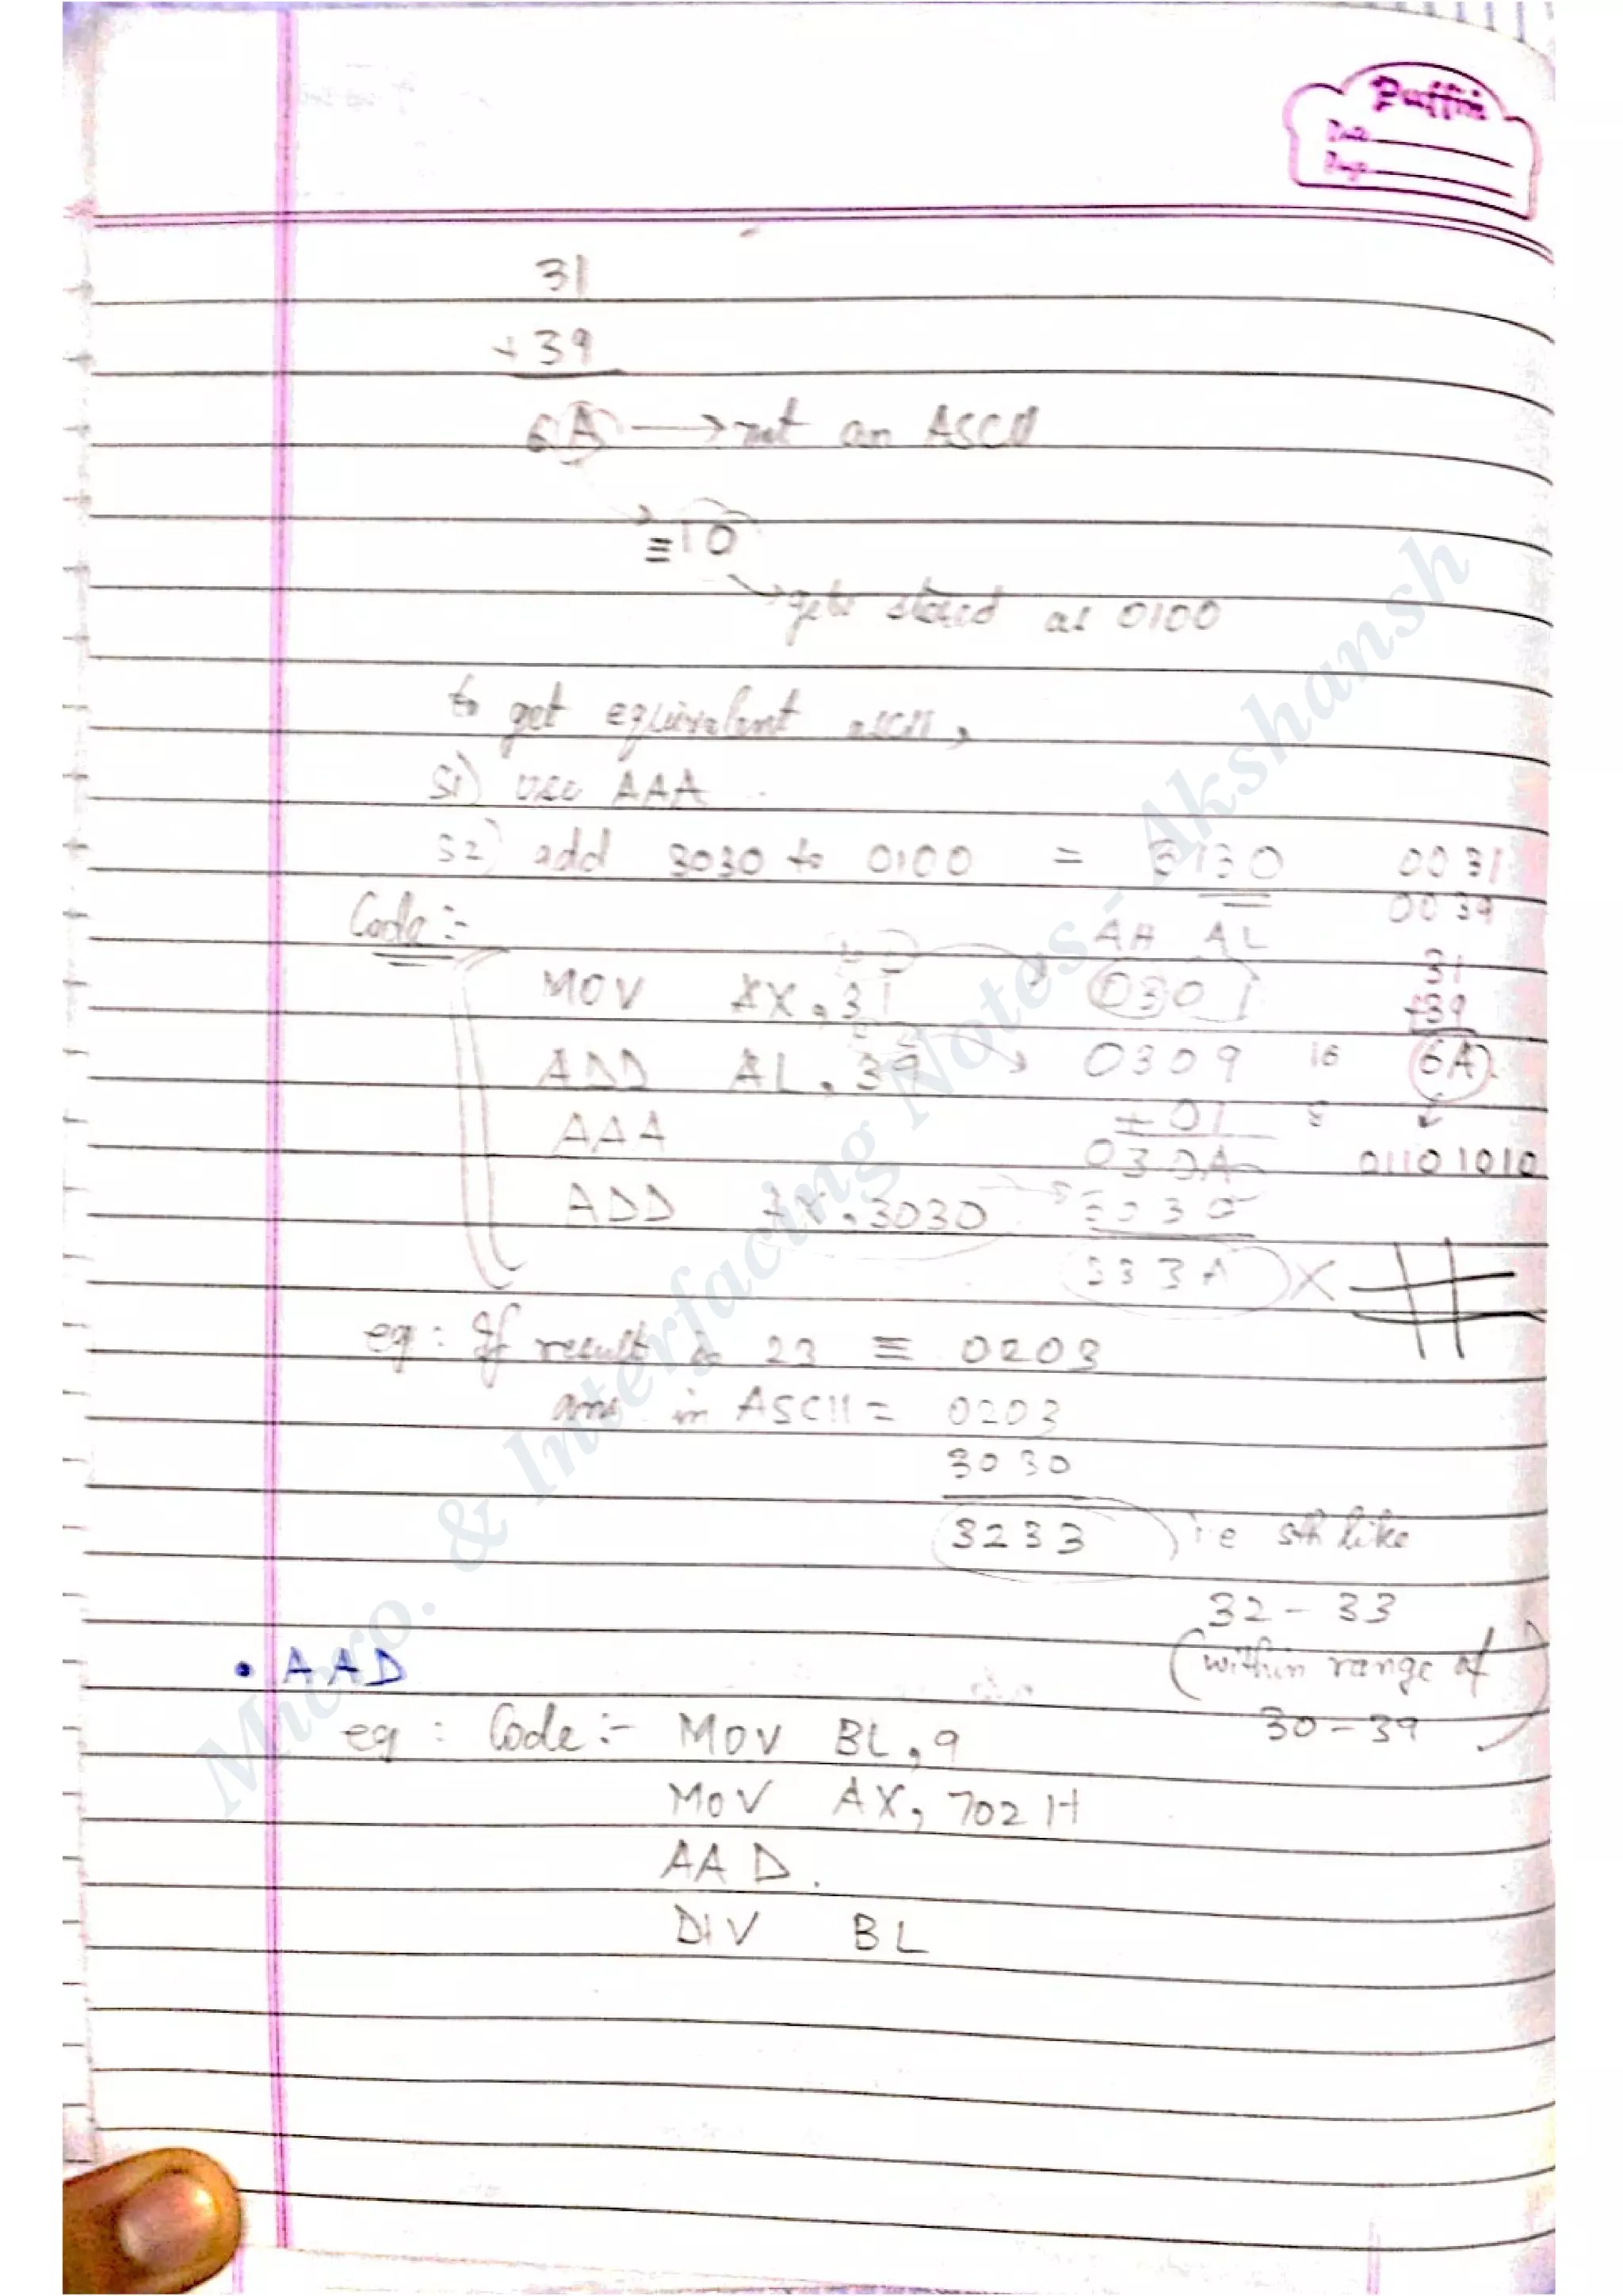 Puffin
Date
Page
31
+ 39
6A → not an ASCII
≡ 10
→ gets stored as 0100
to get equivalent ASCII,
S1) use AAA
S2) add 3030 to 0100 = 3130 0031
0039
Code :-
AH AL
MOV AX, 31 0301 31
+39
ADD AL, 39 0309 16 6A
AAA + 01
030A 01101010
ADD AX, 3030 3030
333A X
eg : If result is 23 ≡ 0203
ans in ASCII = 0203
3030
3233 ie sth like
32 - 33
(within range of
30 - 39)
• AAD
eg : Code :- MOV BL, 9
MOV AX, 702H
AAD.
DIV BL
Micro. & Interfacing Notes - Akshansh